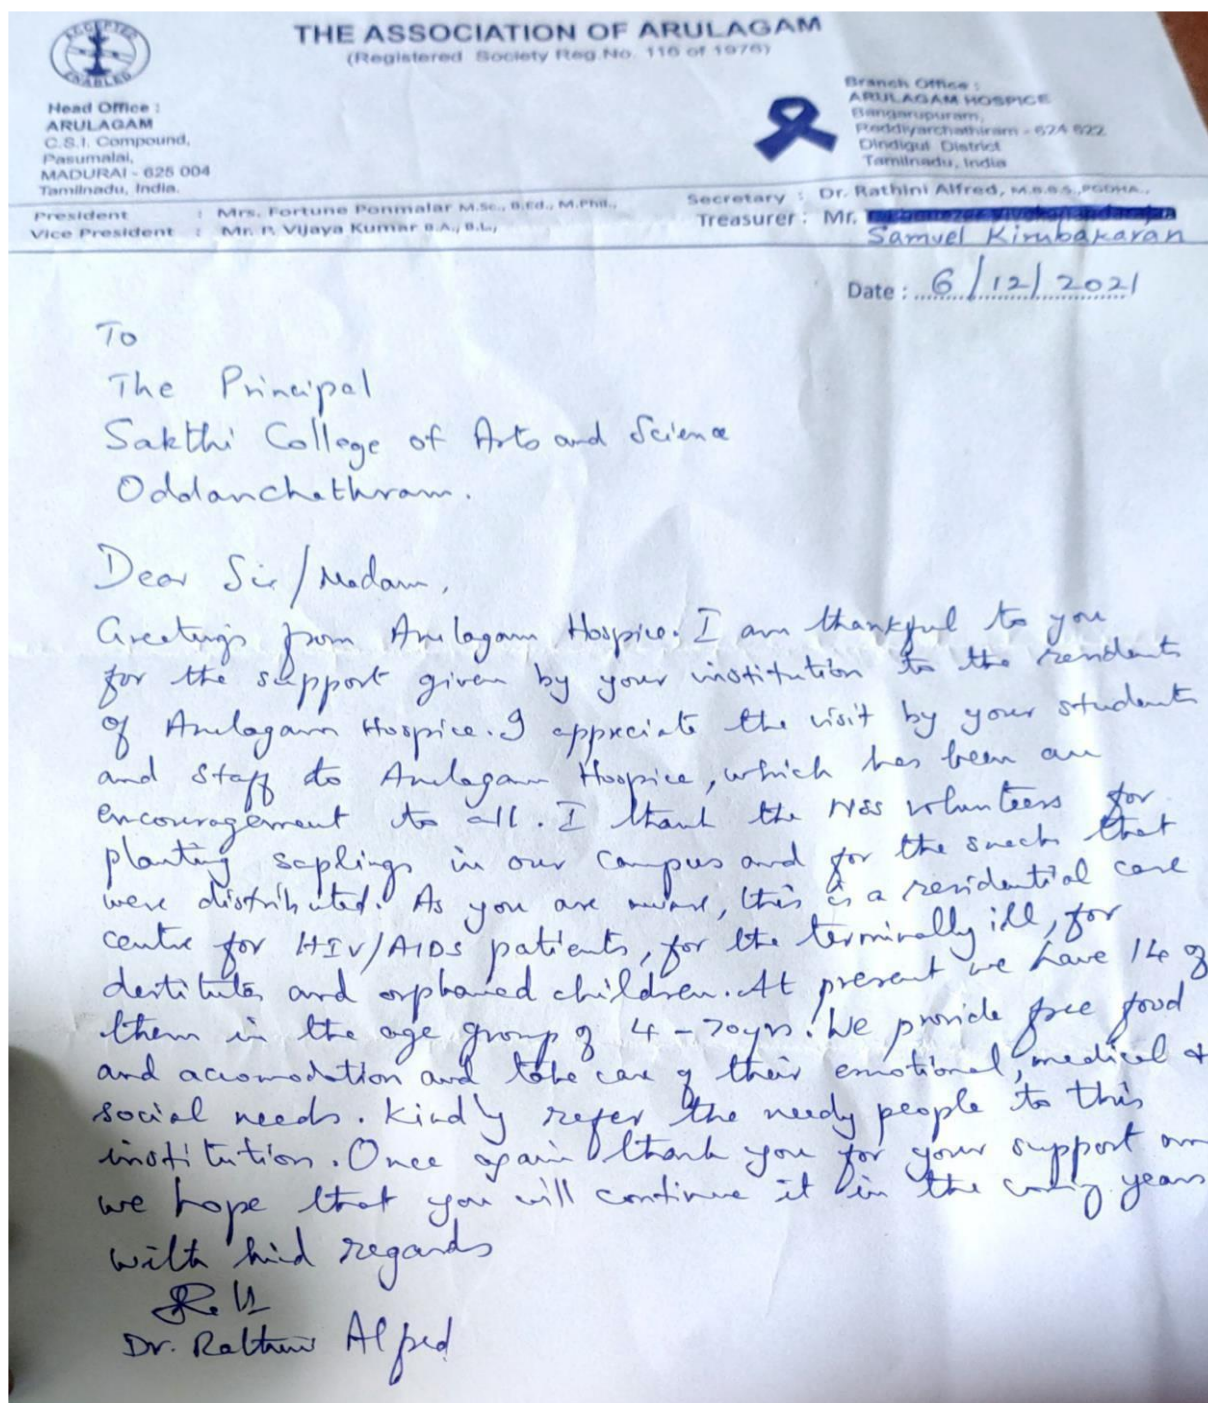 ACCEPTED
ENABLED
THE ASSOCIATION OF ARULAGAM
(Registered Society Reg.No. 116 of 1976)
Head Office :
ARULAGAM
C.S.I. Compound,
Pasumalai,
MADURAI - 625 004
Tamilnadu, India.
Branch Office :
ARULAGAM HOSPICE
Bangarupuram,
Reddiyarchathiram - 624 622
Dindigul District
Tamilnadu, India
President : Mrs. Fortune Ponmalar M.Sc., B.Ed., M.Phil.,
Vice President : Mr. P. Vijaya Kumar B.A., B.L.,
Secretary : Dr. Rathini Alfred, M.B.B.S.,PGDHA.,
Treasurer : Mr.
Samvel Kirubakaran
Date : 6/12/2021
To
The Principal
Sakthi College of Arts and Science
Oddanchathram.
Dear Sir/Madam,
Greetings from Arulagam Hospice. I am thankful to you
for the support given by your institution to the residents
of Arulagam Hospice. I appreciate the visit by your students
and staff to Arulagam Hospice, which has been an
encouragement to all. I thank the NSS volunteers for
planting saplings in our campus and for the snacks that
were distributed. As you are aware, this is a residential care
centre for HIV/AIDS patients, for the terminally ill, for
destitutes and orphaned children. At present we have 14 of
them in the age group of 4 - 70yrs. We provide free food
and accomodation and take care of their emotional, medical &
social needs. Kindly refer the needy people to this
institution. Once again thank you for your support an
we hope that you will continue it in the coming years
with kind regards
Dr. Rathini Alfred